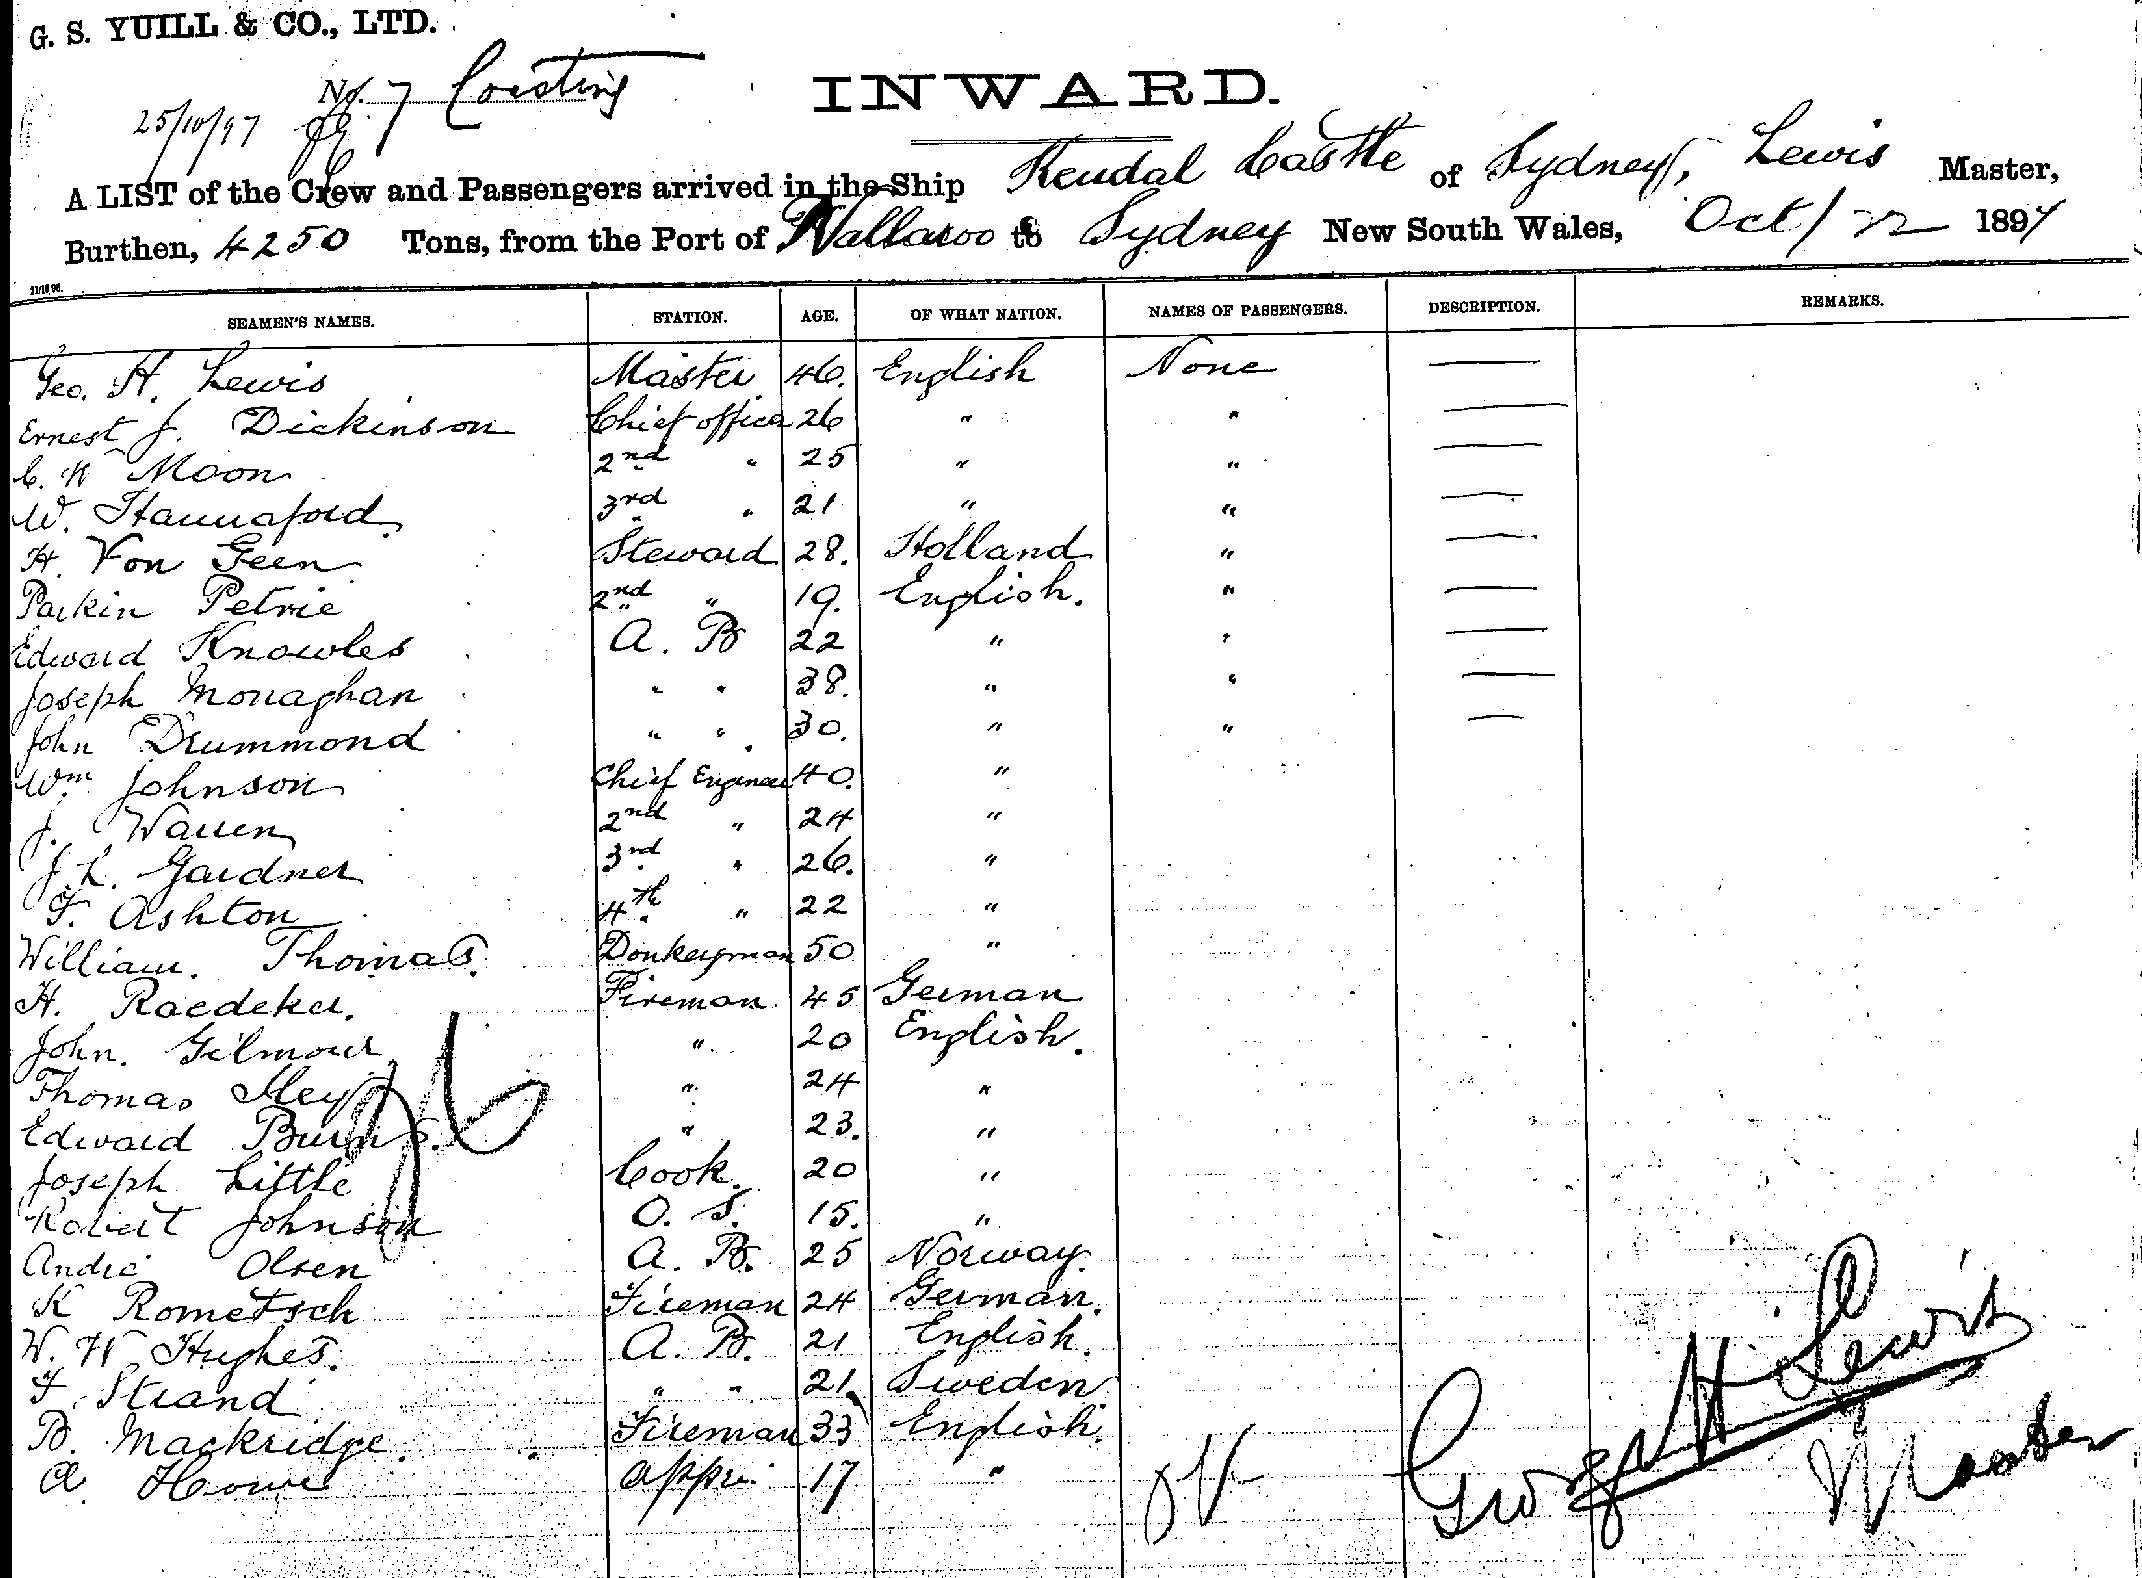 G. S. YUILL & CO., LTD.
No. 7 Coasting
25/10/97
INWARD.
A LIST of the Crew and Passengers arrived in the Ship Kendal Castle of Sydney, Lewis Master,
Burthen, 4250 Tons, from the Port of Wallaroo to Sydney New South Wales, Oct/22 1897
SEAMEN'S NAMES. STATION. AGE. OF WHAT NATION. NAMES OF PASSENGERS. DESCRIPTION. REMARKS.
Geo. H. Lewis Master 46. English None —
Ernest J. Dickinson Chief officer 26 " " —
C. H Moon 2nd " 25 " " —
W. Hannaford 3rd " 21 " " —
H. Von Geen Steward 28. Holland " —
Parkin Petrie 2nd " 19. English. " —
Edward Knowles A. B 22 " " —
Joseph Monaghan " " 38. " " —
John Drummond " " 30. " " —
Wm Johnson Chief Engineer 40. "
J. Warren 2nd " 24 "
J. L. Gardner 3rd " 26. "
F. Ashton 4th " 22 "
William. Thomas. Donkeyman 50 "
H. Raedeker. Fireman 45 German
John. Gilmour " 20 English.
Thomas " 24 "
Edward Burns. " 23. "
Joseph Little Cook. 20 "
Robert Johnson O. S. 15. "
Andre Olsen A. B. 25 Norway.
K Rometsch Fireman 24 German.
W. H. Hughes. A. B. 21 English.
F. Strand " " 21 Sweden
B. Mackridge. Fireman 33 English.
A Howe appre. 17 "
George H Lewis
Master